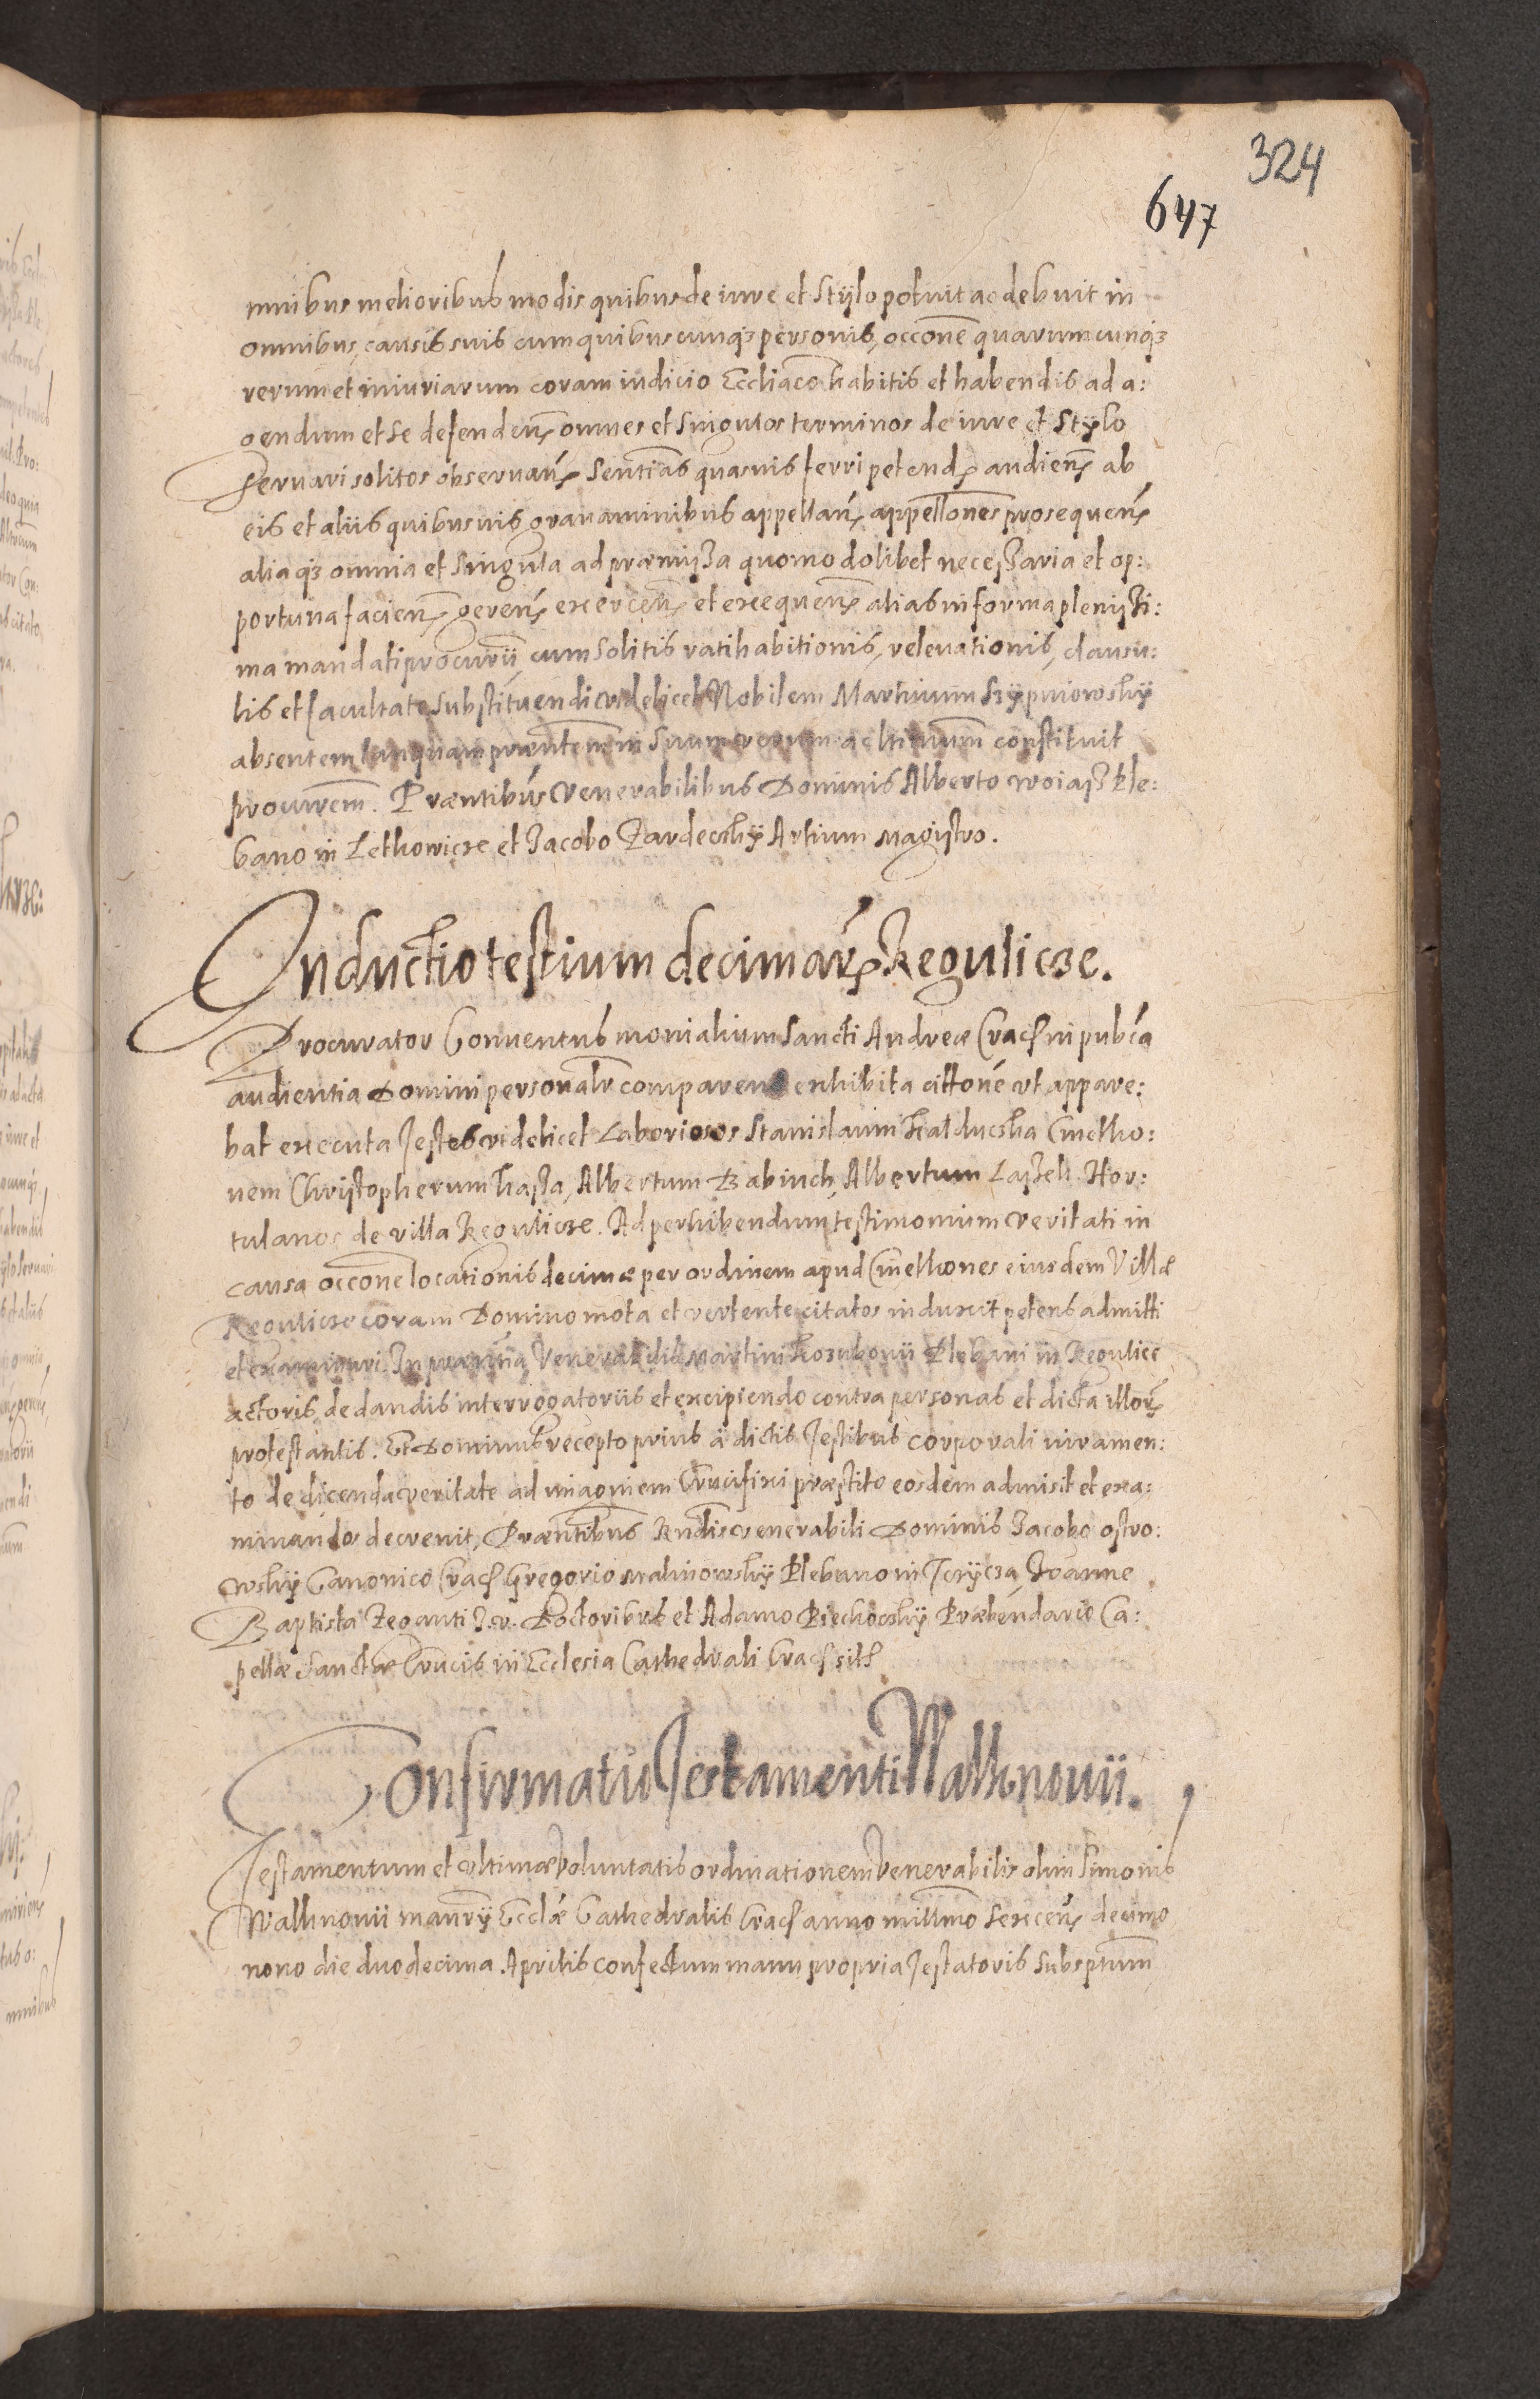 324
647
mnibus melioribus modis quibus de iure et Stÿlo potuit ac debuit in
omnibus causis suis cum quibuscunqȝ personis, occōne quarumcunqȝ
rerum et iniuriarum coram iudicio Eccliaco habitis et habendis ad a:
gendum et se defenden̄ omnes et Singulos terminos de iure et Stÿlo
Seruari solitos obseruan̄ Sentias quasuis ferri petend audien̄ ab
eis et aliis quibusuis grauaminibus appellan̄ appellones prosequen̄
aliaqȝ omnia et Singula ad præmissa quomodolibet necessaria et op:
portuna facien̄ geren̄ exercen̄ et exequen̄ alias in forma plenissi:
ma mandati procurii cum Solitis ratihabitionis, releuationis, clausu:
lis et facultate Substituendi videlicet Nobilem Martinum
absentem tanquam præntem in Suum verum ac ltimum constituit
procurem. Præntibus Venerabilibus Dominis Alberto woiass Ple:
bano in Lethowicze et Jacobo Zardeczkÿ Artium Magistro.
Inductio testium decimar̄ Regulicze.
Procurator Conuentus monialium Sancti Andreæ Crac̄ in pubca
audientia Domini personalr comparens exhibita cittone vt appare:
bat executa Testes videlicet Laboriosos Stanislaum Kmetho:
nem Christopherum Kasta, Albertum Babiuch, Albertum Laszek Hor:
tulanos de villa Regulicze. Ad perhibendum testimonium veritati in
causa occone locationis decimæ per ordinem apud Cmethones eiusdem Villæ
Regulicze coram Domino mota et vertente citatos induxit petens admitti
et examinari. In præntia Venerabilis Martini Kozubonii Plebani in Regulice
actoris de dandis interrogatoriis et excipiendo contra personas et dicta illor̄
protestantis. Et Dominus recepto prius à dictis Testibus corporali iuramen:
to de dicenda veritate ad imaginem Crucifixi præstito eosdem admisit et exa:
minandos decreuit, Præntibus Rndis venerabili Dominis Jacobo ostro:
wskÿ Canonico Crac̄ Gregorio Malinowskÿ Plebano in Joanne
Baptista Zeganti J. v. Doctoribus et Adamo Piechoczkÿ Præbendario Ca:
pellæ Sanctæ Crucis in Ecclesia Cathedrali Crac̄ sitæ
Confirmatio Testamenti Walknouii.
Testamentum et vltimæ voluntatis ordinationem Venerabilis olim Simonis
Walknouii manrÿ Ecclæ Cathedralis Crac̄ anno millmo Sexcen̄ decimo
nono die duodecima Aprilis confectum manu propria Testatoris Subsptum